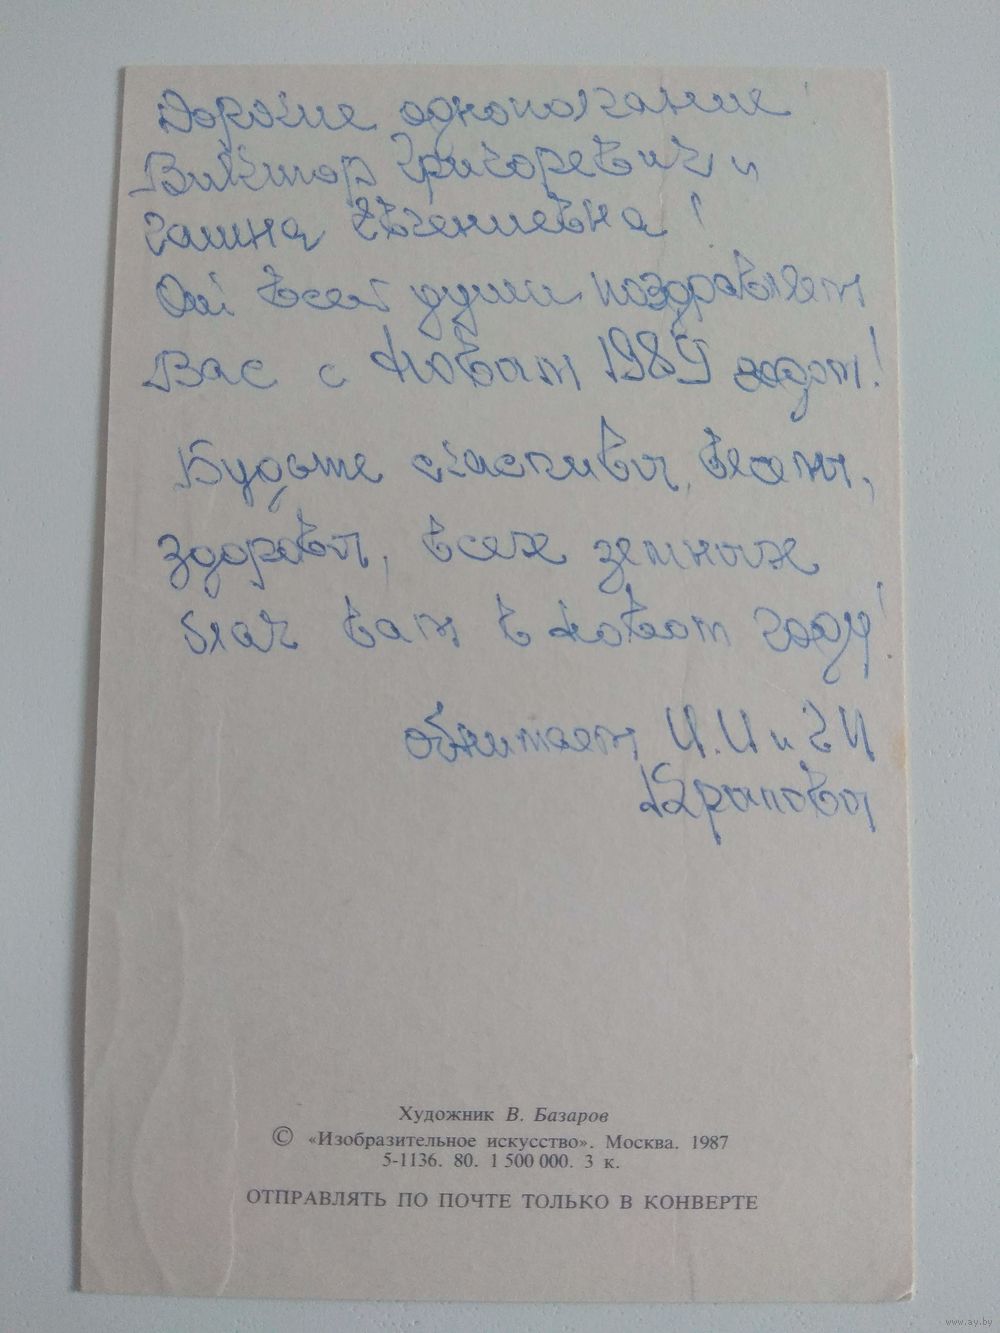 Дорогие однополчане
Виктор Григоревич и
Галина Евгениевна!
От всей души поздравляем
Вас с Новым 1989 годом!
Будьте счастливы, веселы,
здоровы, всех земных
благ вам в новом году!
обнимаем И.И и Г И
Храповы
Художник В. Базаров
© «Изобразительное искусство». Москва. 1987
5-1136. 80. 1 500 000. 3 к.
ОТПРАВЛЯТЬ ПО ПОЧТЕ ТОЛЬКО В КОНВЕРТЕ
www.ay.by